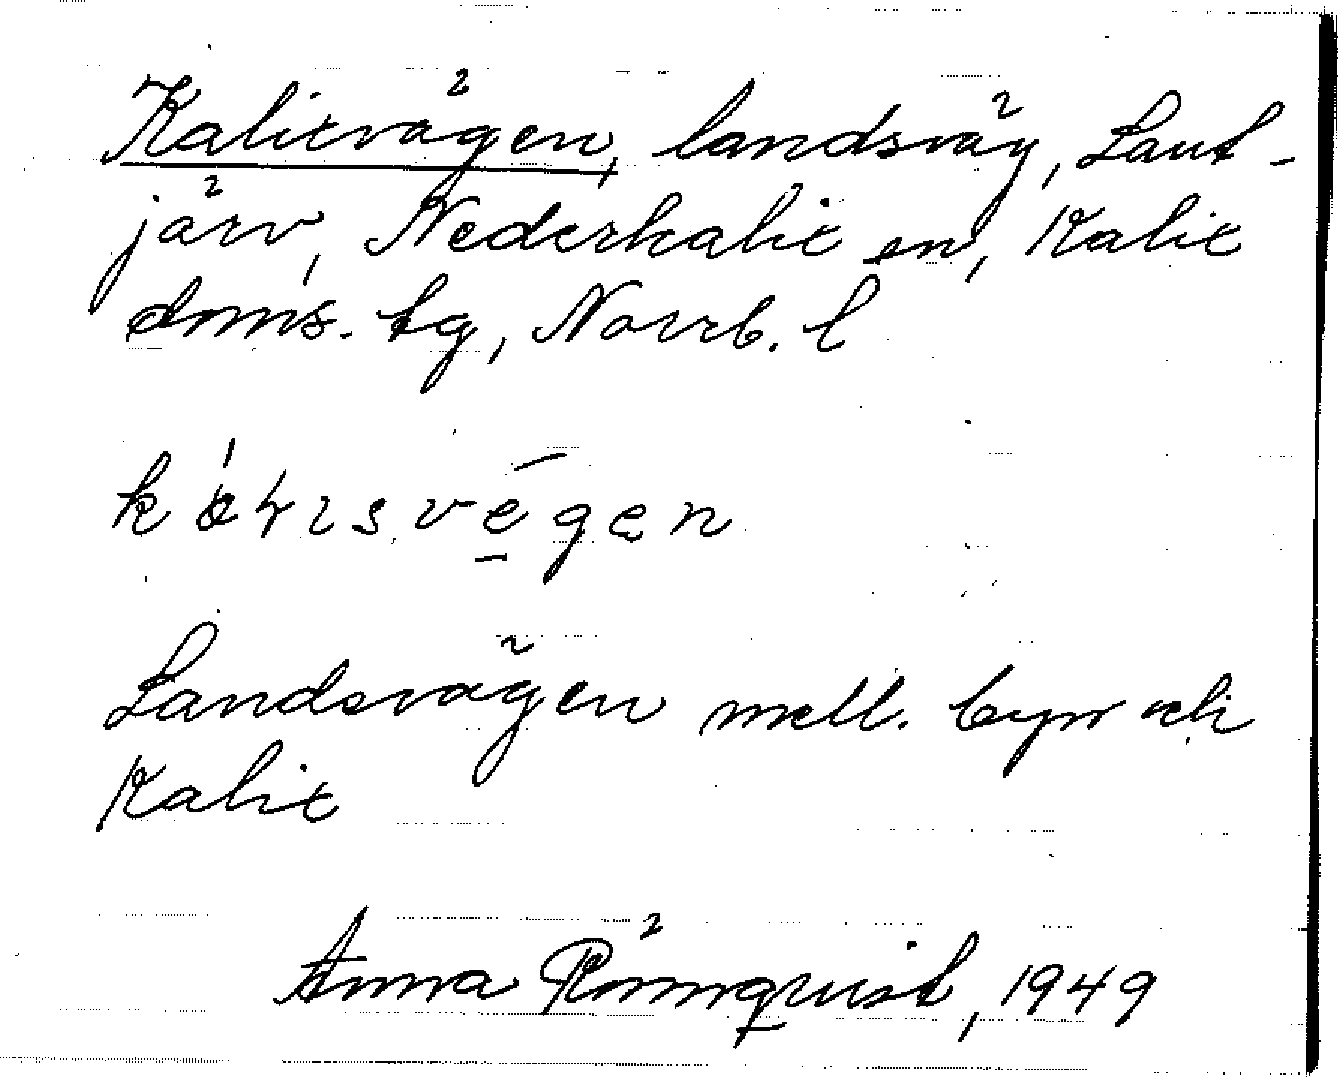 Kalixvägen, landsväg, Laut-
järv, Nederkalix sn, Kalix
doms. tg, Norrb. l
Landsvägen mell. byn och
Kalix
Anna Rönnquist, 1949